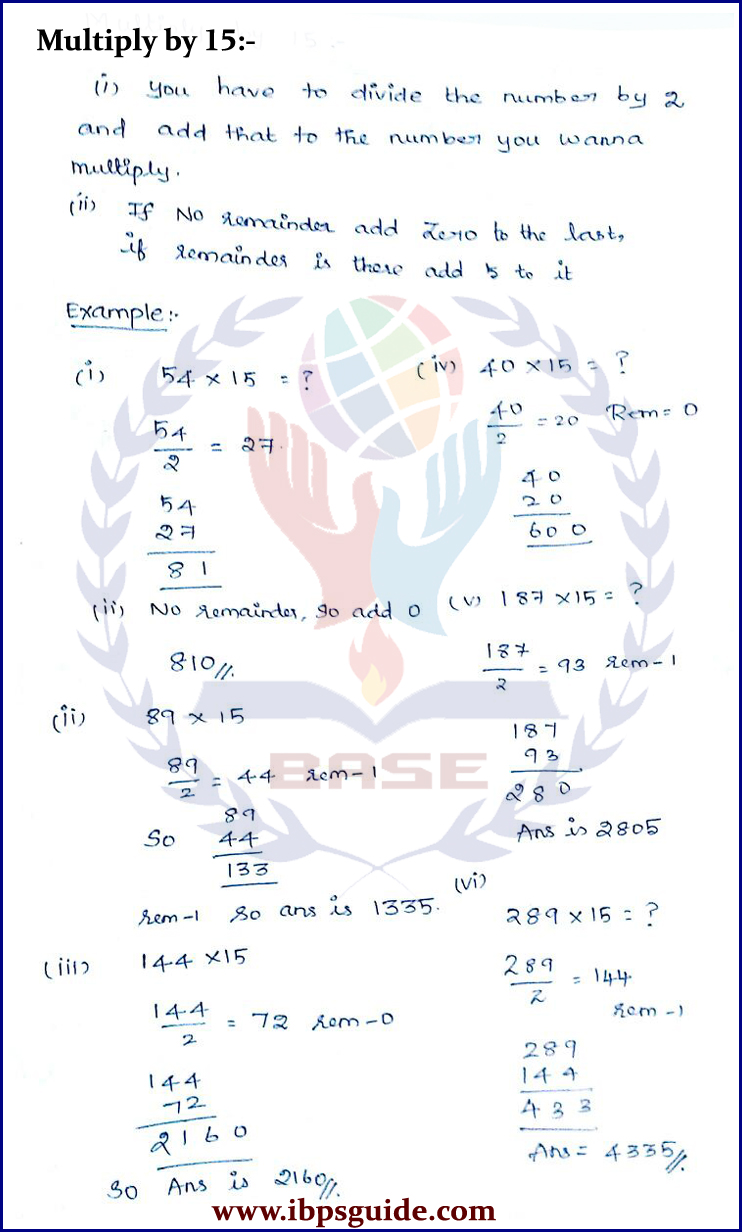 Multiply by 15:-
(i) you have to divide the number by 2
and add that to the number you wanna
multiply.
(ii) If No remainder add Zero to the last,
if remainder is there add 5 to it
Example:-
(i) 54 × 15 = ?
54
2
= 27
54
27
81
(ii) No remainder, so add 0
810//.
(ii) 89 × 15
89
2
= 44 rem-1
So
89
44
133
rem-1 So ans is 1335.
(iii) 144 ×15
144
2
= 72 rem-0
144
72
2160
So Ans is 2160//.
(iv) 40 ×15 = ?
40
2
= 20 Rem= 0
40
20
600
(v) 187 ×15 = ?
187
2
= 93 rem-1
187
93
280
Ans is 2805
(vi)
289 × 15 = ?
289
2
= 144
rem-1
289
144
433
Ans = 4335//.
BASE
www.ibpsguide.com